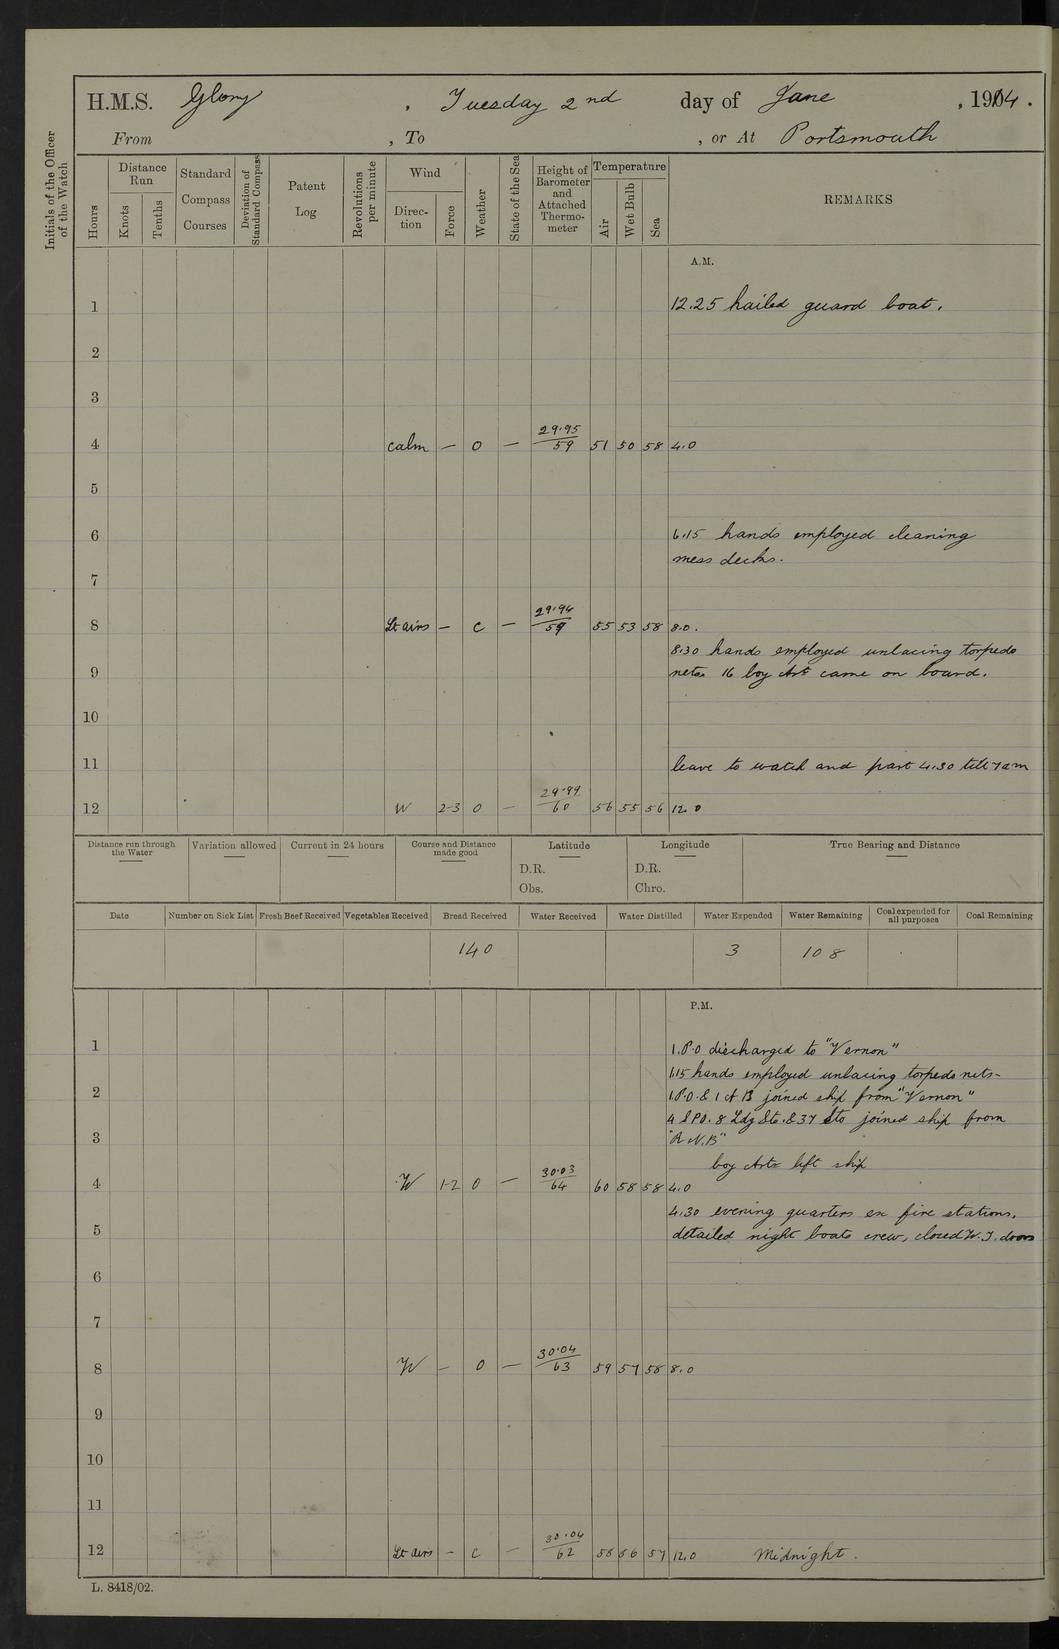 H.M.S. Glory , Tuesday 2nd day of June , 1914 .
From , To , or At Portsmouth
Initials of the Officer of the Watch
Hours
Distance Run
Knots
Tenths
Standard Compass Courses
Deviation of Standard Compass
Patent Log
Revolutions per minute
Wind
Direc-tion
Force
Weather
State of the Sea
Height of Barometer and Attached Thermo-meter
Temperature
Air
Wet Bulb
Sea
REMARKS
A.M.
1 12.25 hailed guard boat.
2
3
29.95
4 calm — O — 59 51 50 58 4.0
5
6 6.15 hands employed cleaning
mess decks.
7
29.94
8 Lt airs — C — 59 55 53 58 8.0.
8.30 hands employed unlacing torpedo
9 nets. 16 boy Arts came on board.
10
11 leave to watch and part 4.30 till 7 am
29.99
12 W 2-3 O — 60 56 55 56 12.0
Distance run through the Water
Variation allowed
Current in 24 hours
Course and Distance made good
Latitude
D.R.
Obs.
Longitude
D.R.
Chro.
True Bearing and Distance
Date Number on Sick List Fresh Beef Received Vegetables Received Bread Received Water Received Water Distilled Water Expended Water Remaining Coal expended for all purposes Coal Remaining
140 3 108
P.M.
1 1.P.O discharged to "Vernon"
1.15 hands employed unlacing torpedo nets-
2 1.P.O. & 1 AB joined ship from "Vernon"
4 S PO. 8 Ldg Sto. & 37 Sto joined ship from
3 "R.N.B"
boy Arts left ship
30.03
4 W 1-2 O — 64 60 58 58 4.0
4.30 evening quarters ex fire stations.
5 detailed night boats crew, closed W.T. doors
6
7
30.04
8 W — O — 63 59 57 58 8.0
9
10
11
30.04
12 Lt airs — C — 62 58 56 57 12.0 Midnight.
L. 8418/02.